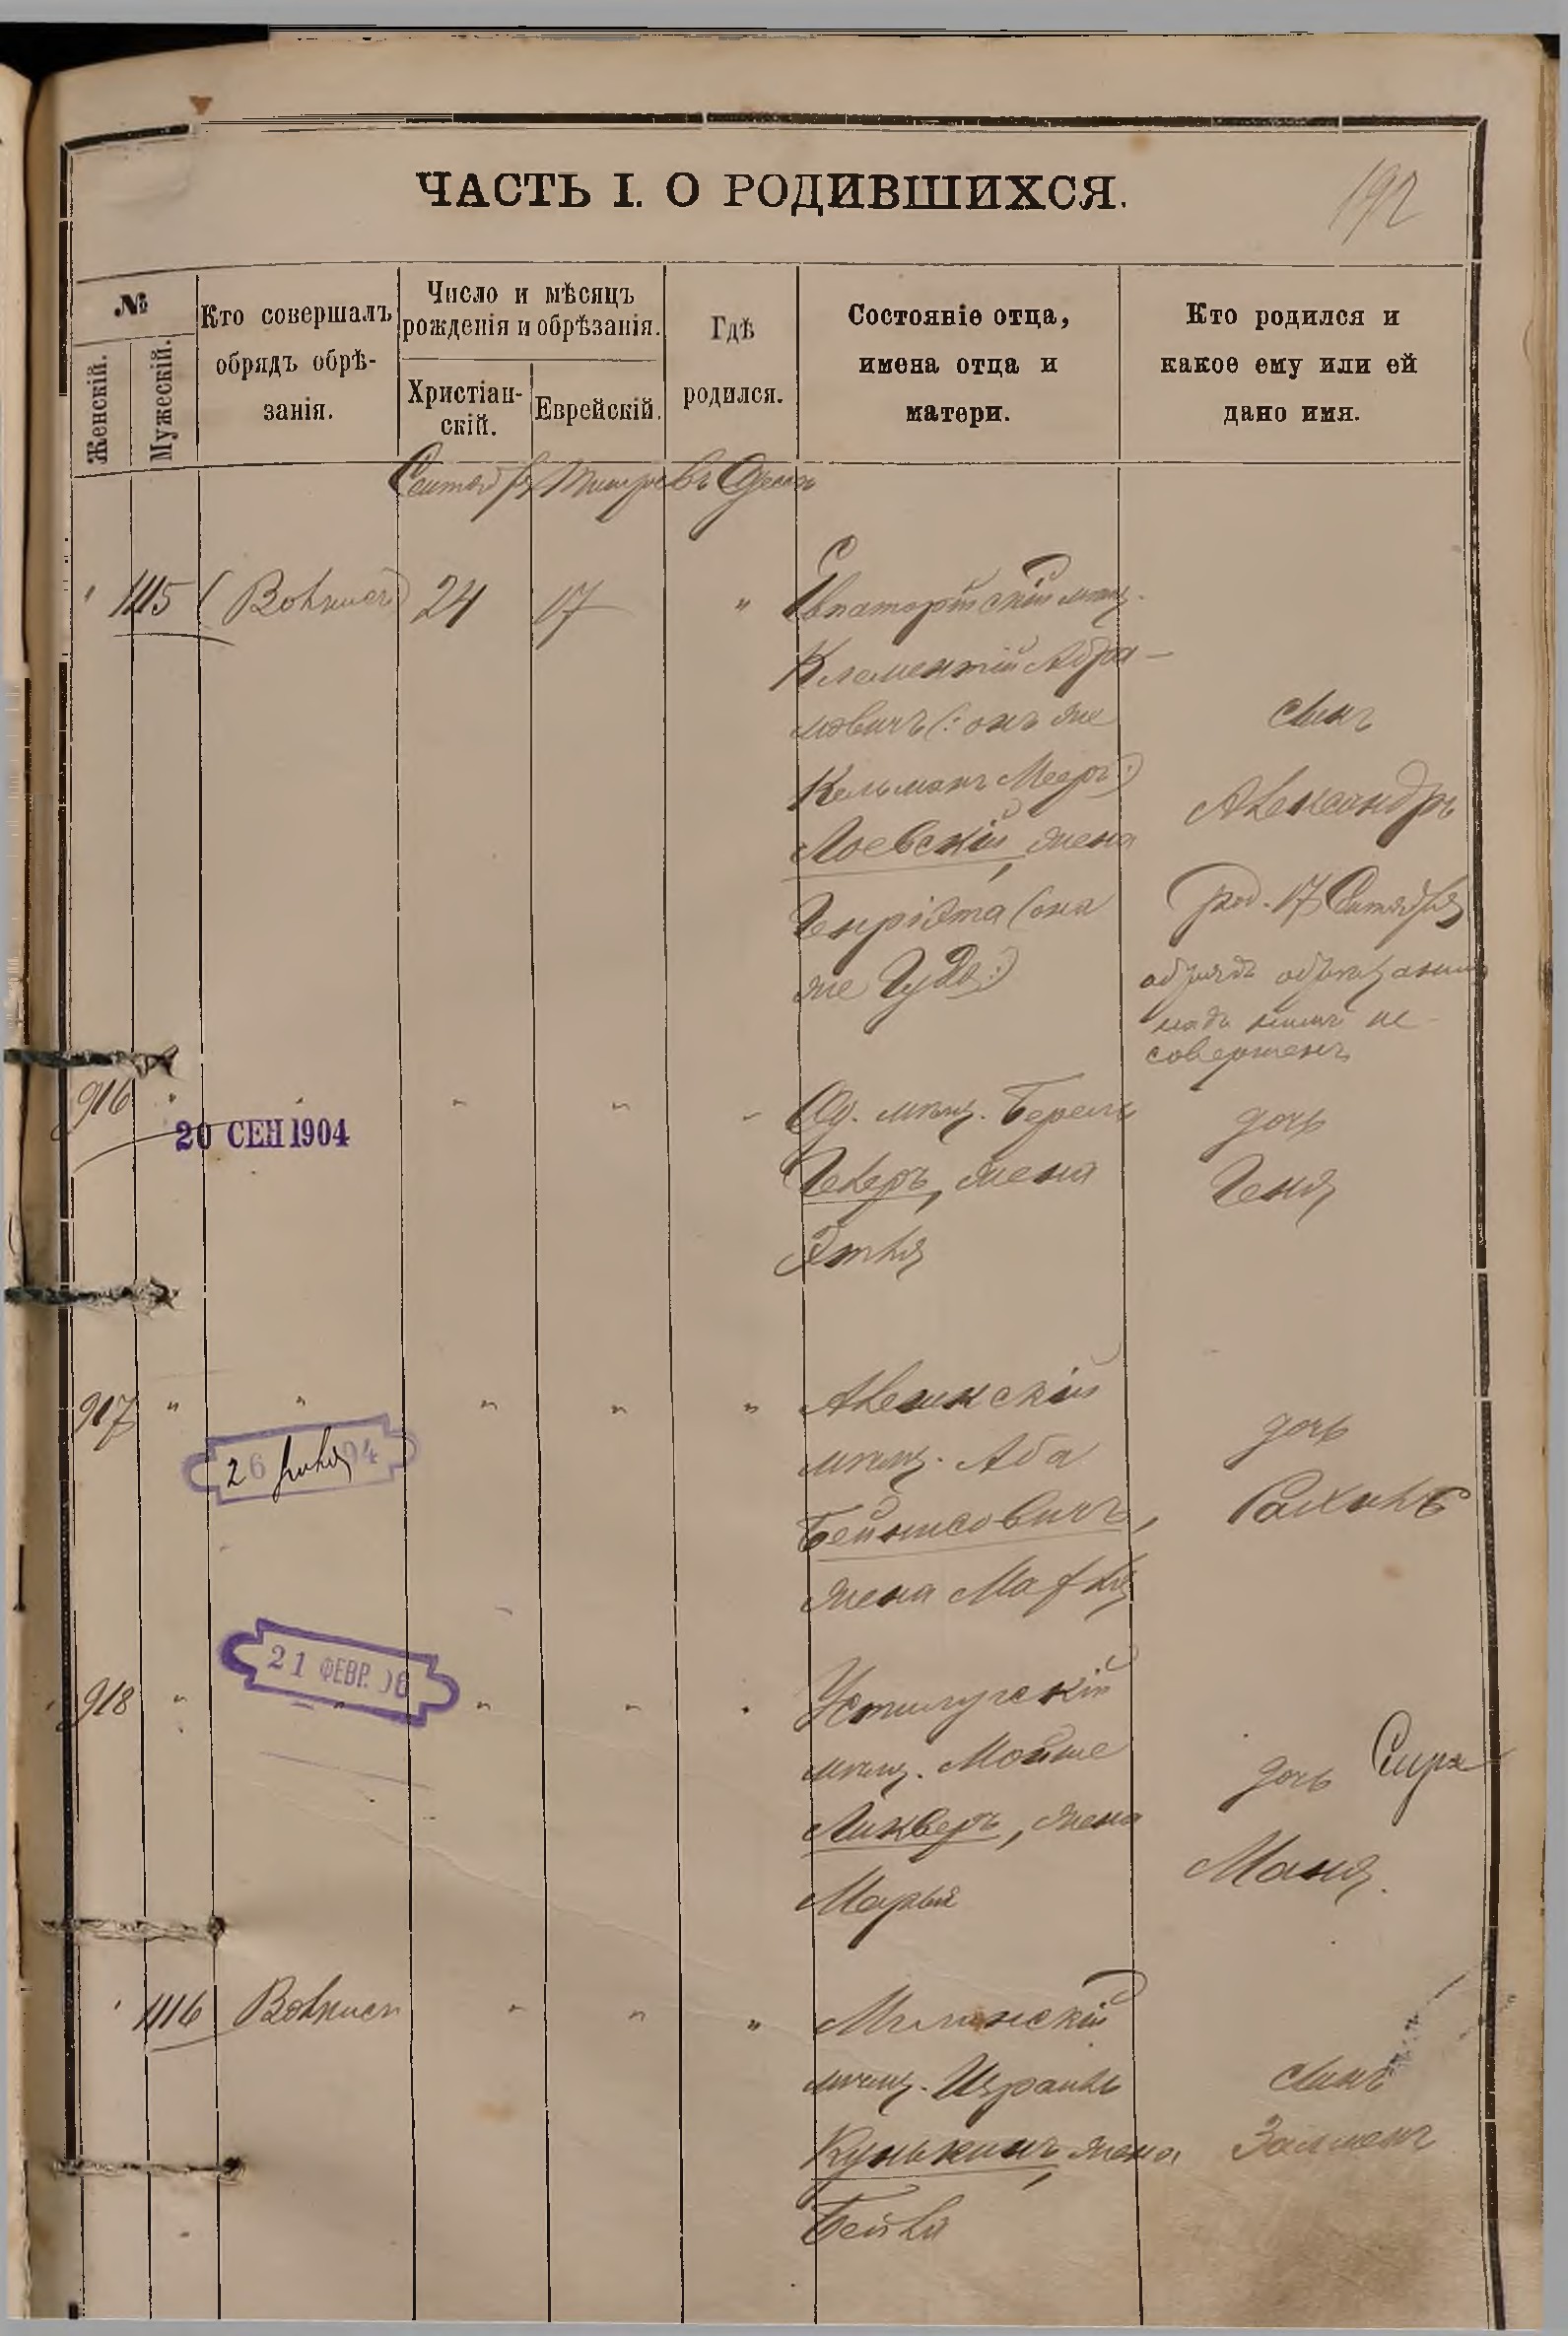 192
ЧАСТЬ I. О РОДИВШИХСЯ.
№
Женскій.
Мужескій.
Кто совершалъ
обрядъ обрѣ-
занія.
Число и мѣсяцъ
рожденія и обрѣзанія.
Христіан-
скій.
Еврейскій.
Гдѣ
родился.
Состояніе отца,
имена отца и
матери.
Кто родился и
какое ему или ей
дано имя.
Сентябрь Тишри въ Одессѣ
" 1115 24 17 "
Евпаторійскій мѣщ.
Клементій Абра-
мовичъ (: онъ же
Кельманъ Мееръ :)
Лоевскій, жена
Генріэта (она
же Гудя :)
сынъ
Александръ
род. 17 Сентября
обрядъ обрѣзанія
надъ нимъ не
совершенъ
916 " " " " "
20 СЕН 1904
Од. мѣщ. Берель
Гелеръ, жена
Этля
дочь
Геня
917 " " " " "
Алешкскій
мѣщ. Аба
Бейнисовичъ,
жена
дочь
Рахиль
21 ФЕВР.
918 " " " " "
Устилугскій
мѣщ. Мойше
Ликверъ, жена
Марья
дочь Сура
Маня.
" 1116 " " "
мѣщ. Израиль
Кунькинъ, жена
Бейля
сынъ
Залменъ